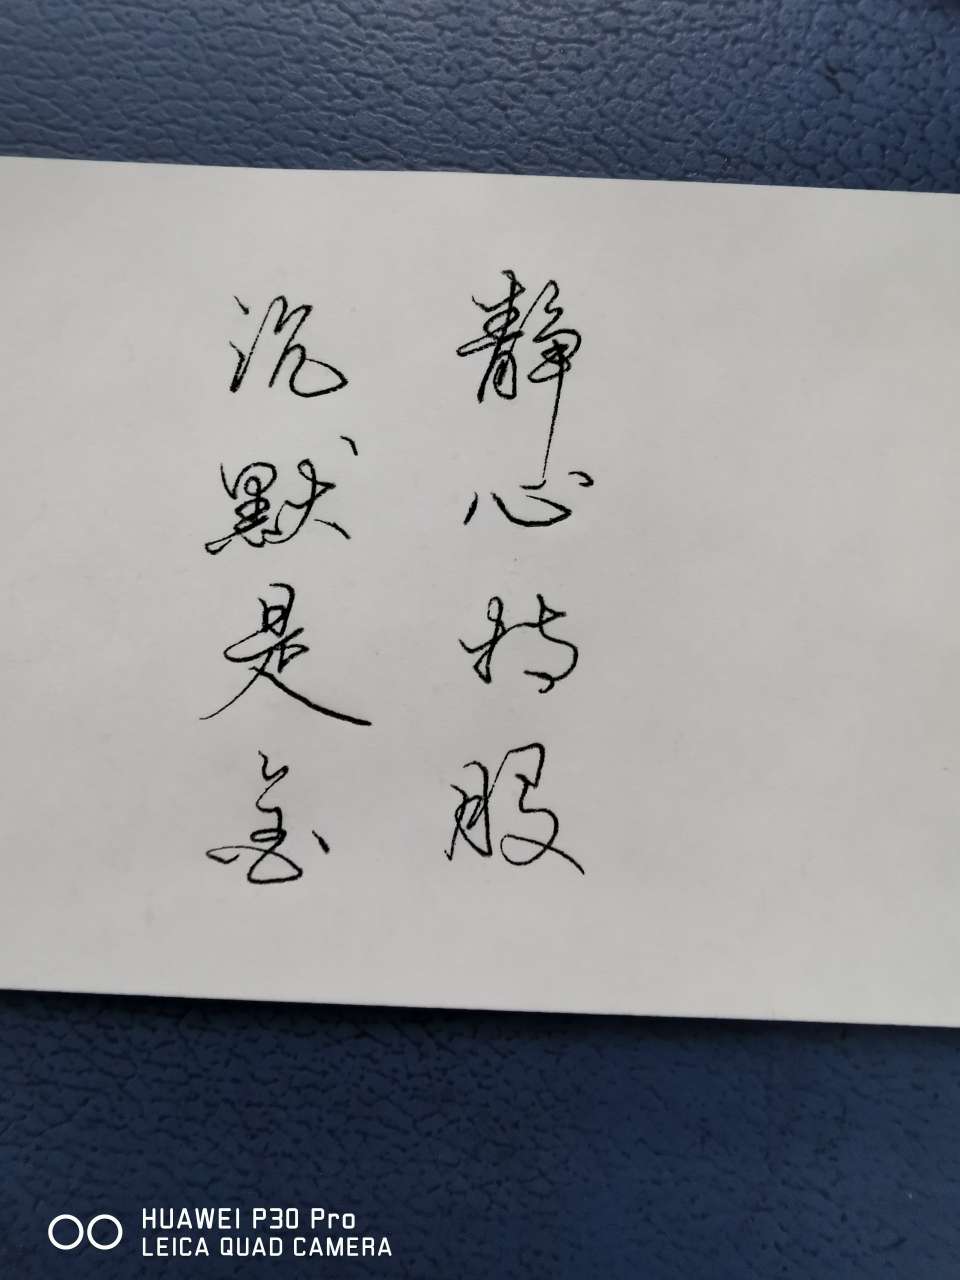 静心持股
沉默是金
HUAWEI P30 Pro
LEICA QUAD CAMERA